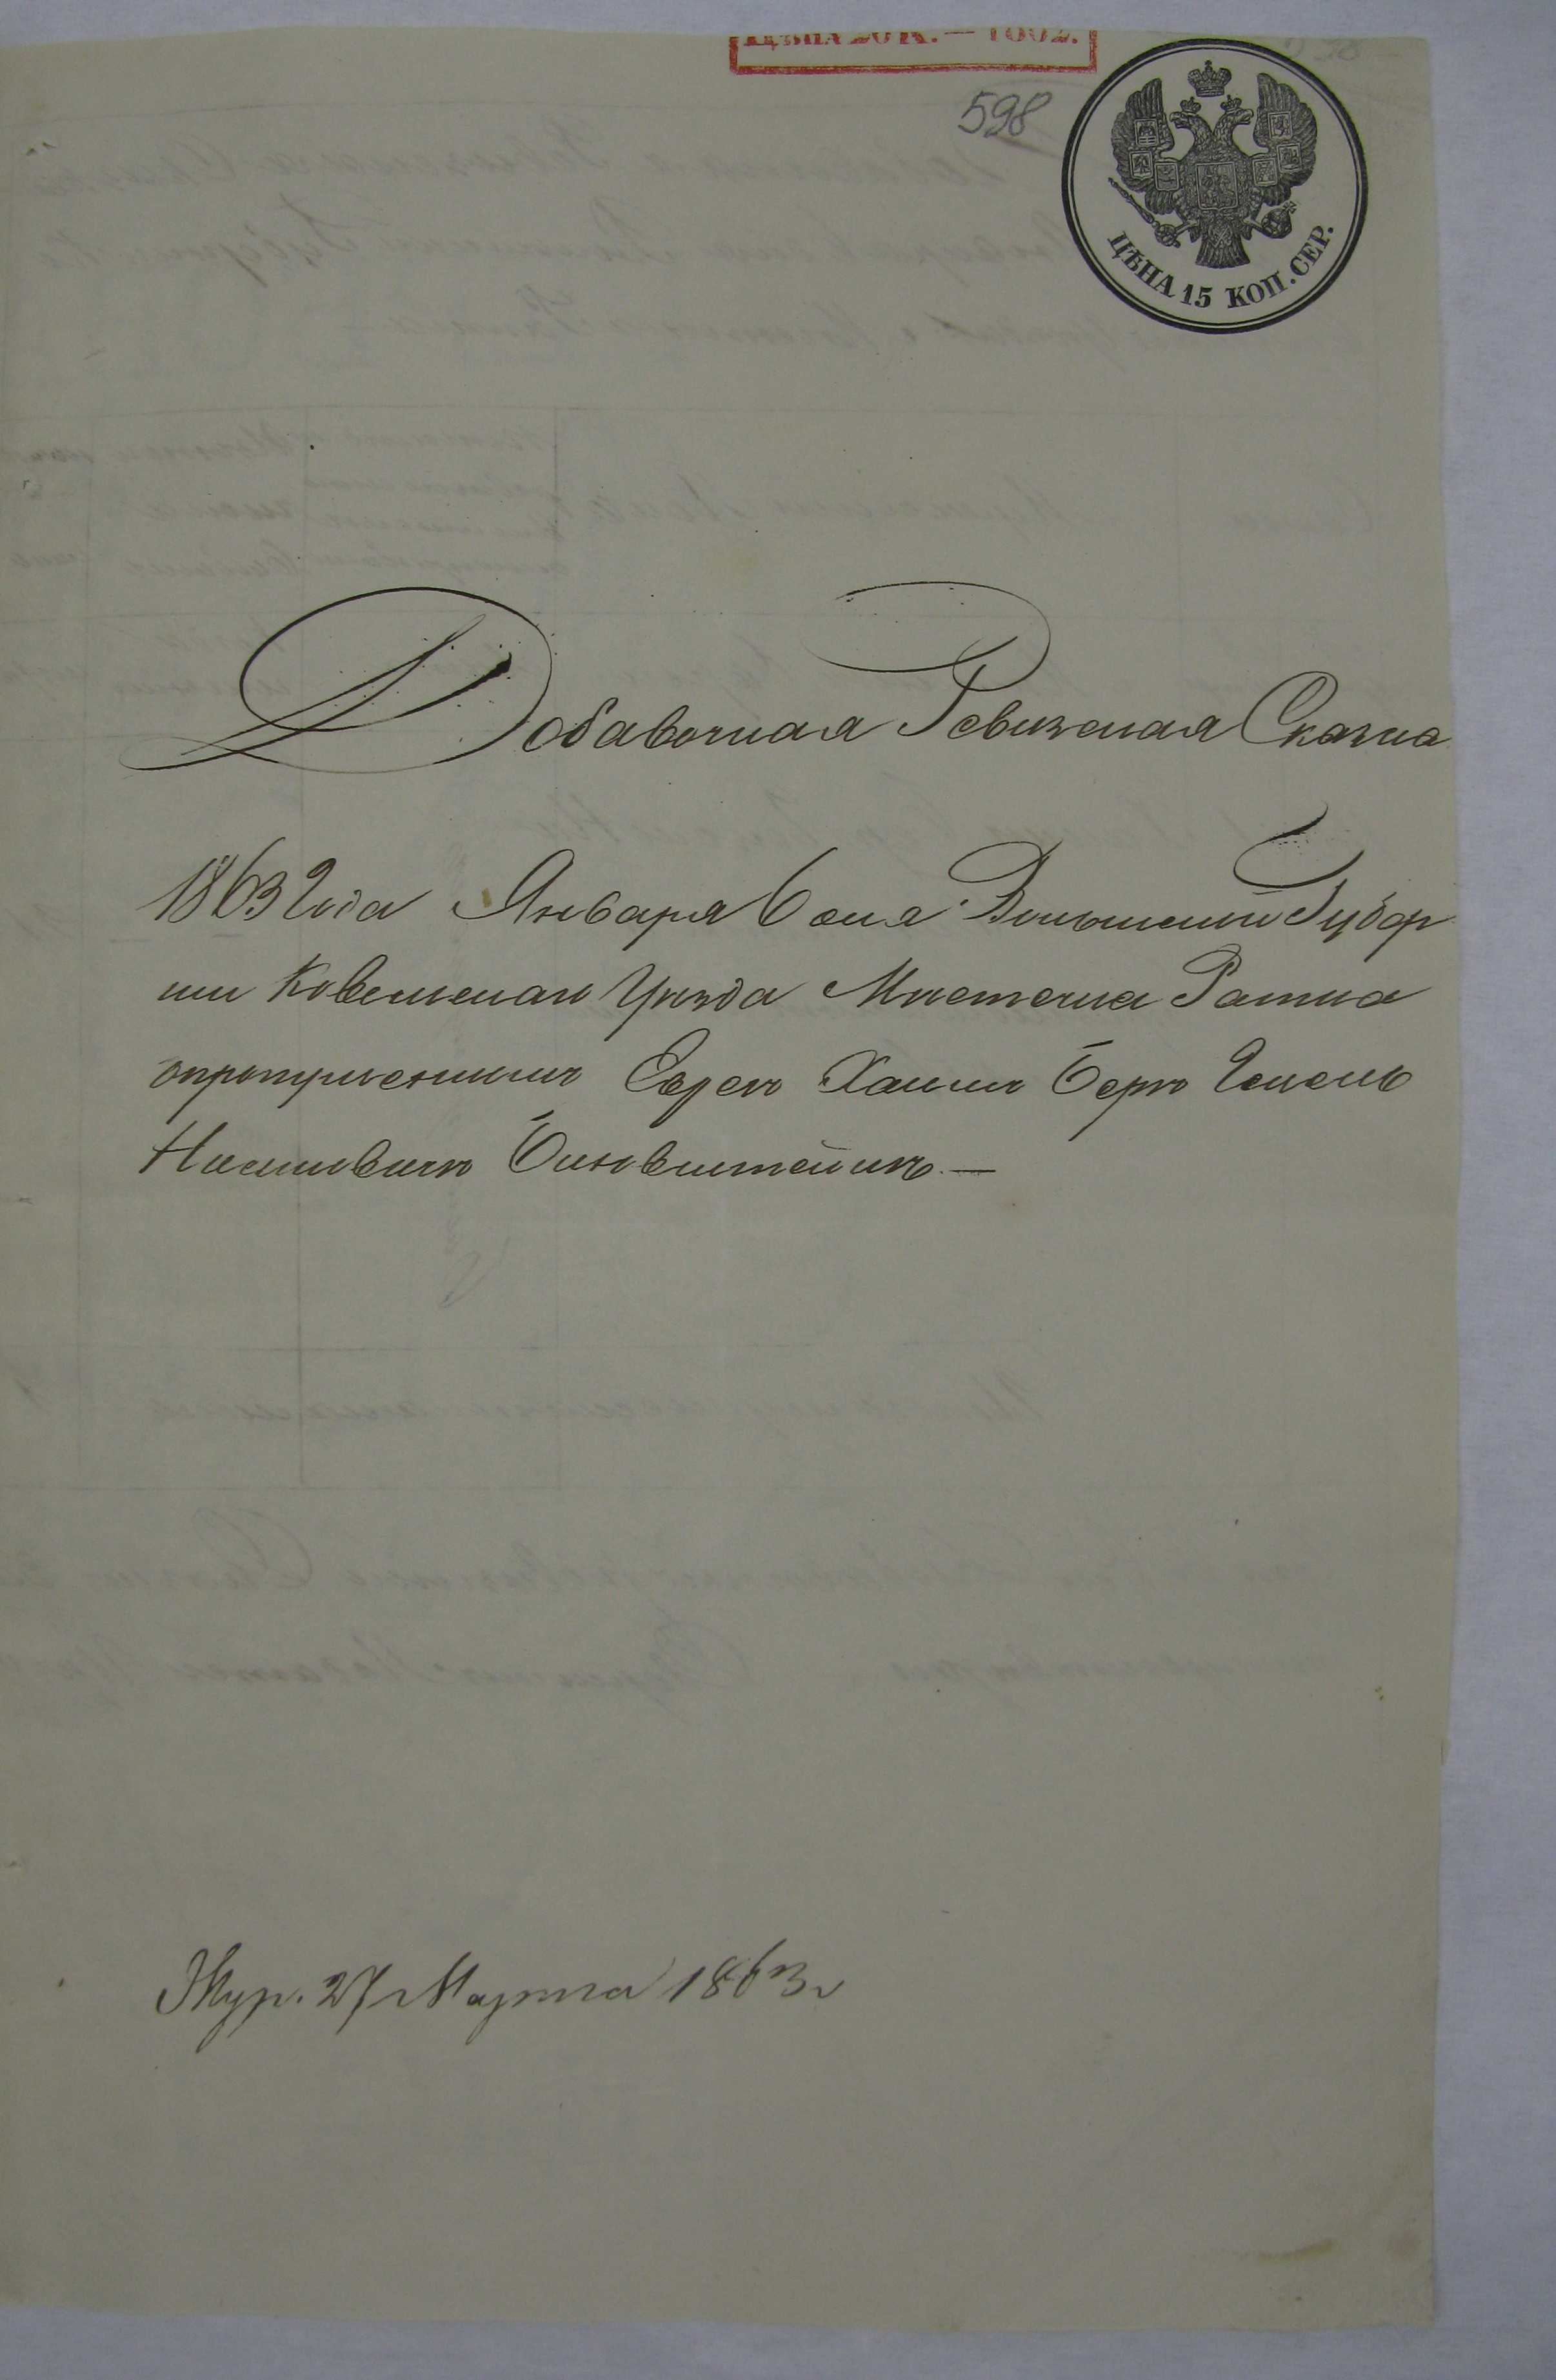 ЦѢНА 20 К. — 1862.
598
ЦѢНА 15 КОП. СЕР.
Добавочная Ревизская Сказка
1863 Года Января 6 дня Волынской Губер
нии Ковельскаго Уѣзда Мѣстечка Ратна
о пропущенномъ Евреѣ Хаимъ Беръ
Бинёвиштейнъ. —
Жур. 27 Марта 1863 г